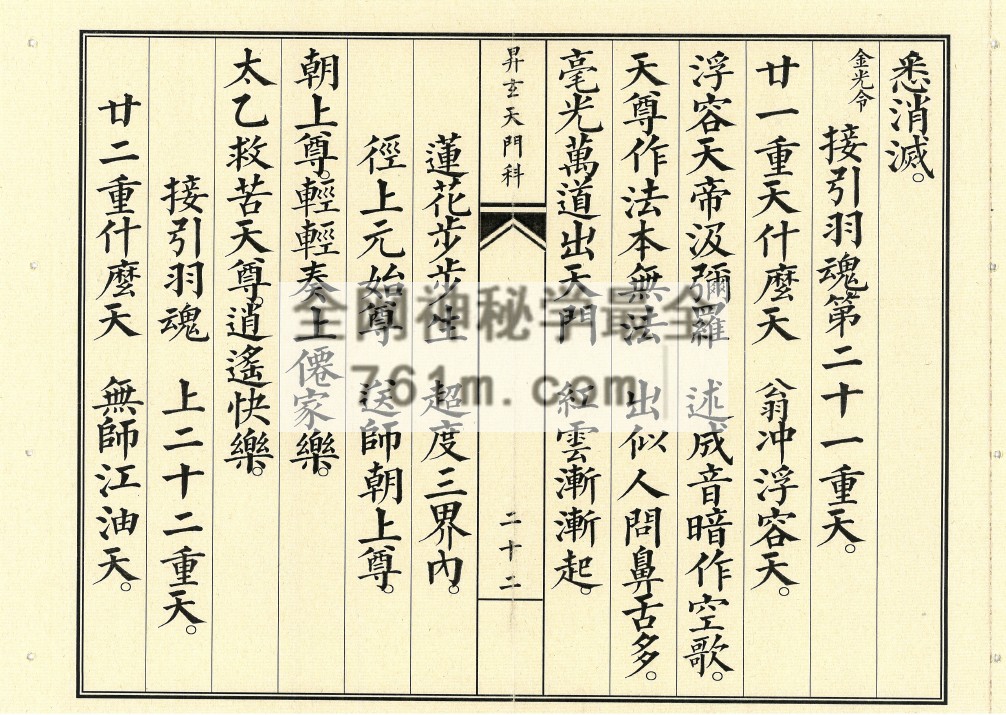 悉消滅。
金光令
接引羽魂第二十一重天。
廿一重天什麼天　翁冲浮容天。
浮容天帝汲彌羅　述成音暗作空歌。
天尊作法本無法　出似人問鼻舌多。
毫光萬道出天門　紅雲漸漸起。
昇玄天門科
二十二
蓮花步步生　超度三界內。
徑上元始尊　送師朝上尊。
朝上尊。輕輕奏上僊家樂。
太乙救苦天尊。逍遙快樂。
接引羽魂　上二十二重天。
廿二重什麼天　無師江油天。
全閣神秘学最全
761m.com